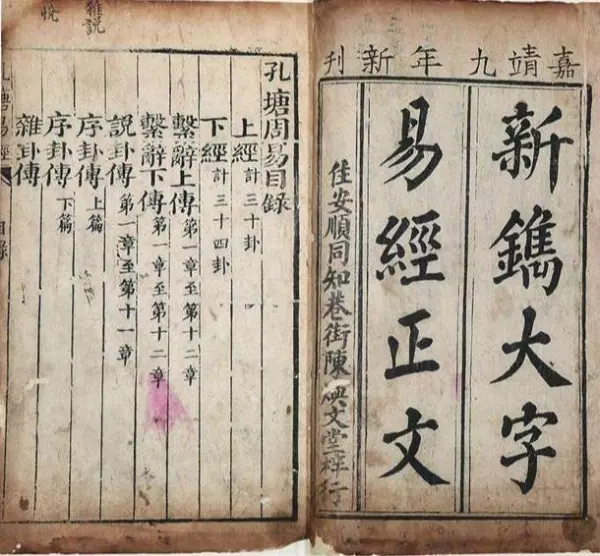 嘉靖九年新刊
新鐫大字
易經正文
安順同知巷街陳文堂梓行
孔塘周易目錄
上經 計三十卦
下經 計三十四卦
繫辭上傳 第一章至第十二章
繫辭下傳 第一章至第十二章
說卦傳 第一章至第十一章
序卦傳 上篇
序卦傳 下篇
雜卦傳
雜説
悅
易經 目錄